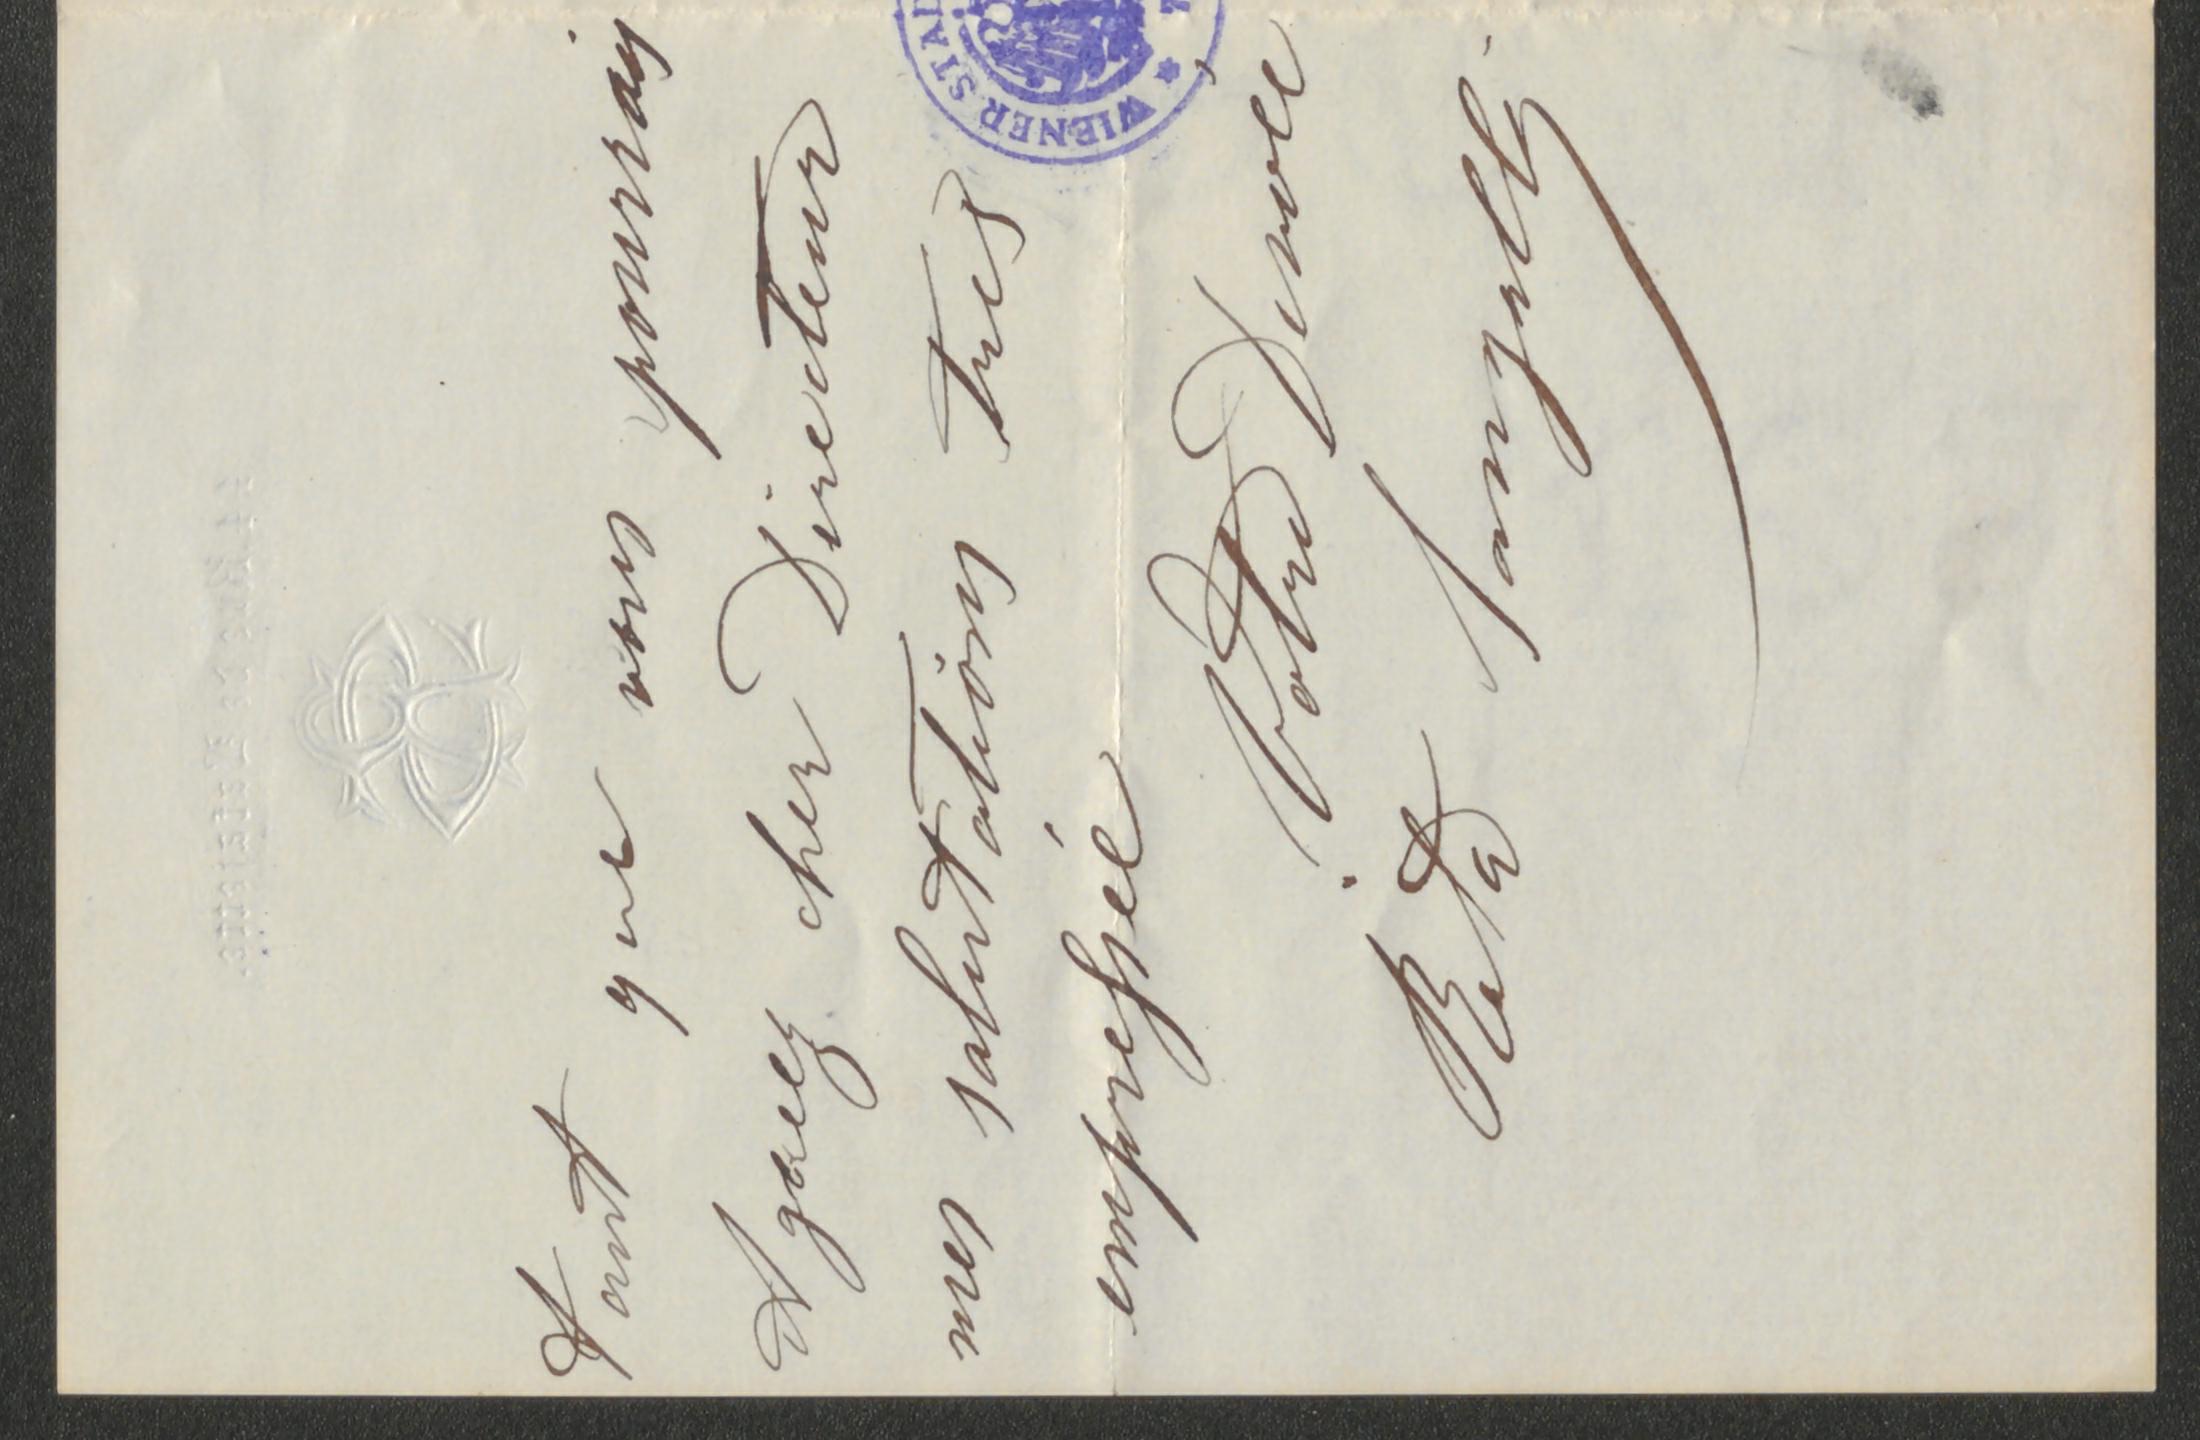 Tant que vous pourrai
Agreez cher Directeur
mes salutations tres
empressée
Votre Devoué
Rita Sangalli
WIENER STAD